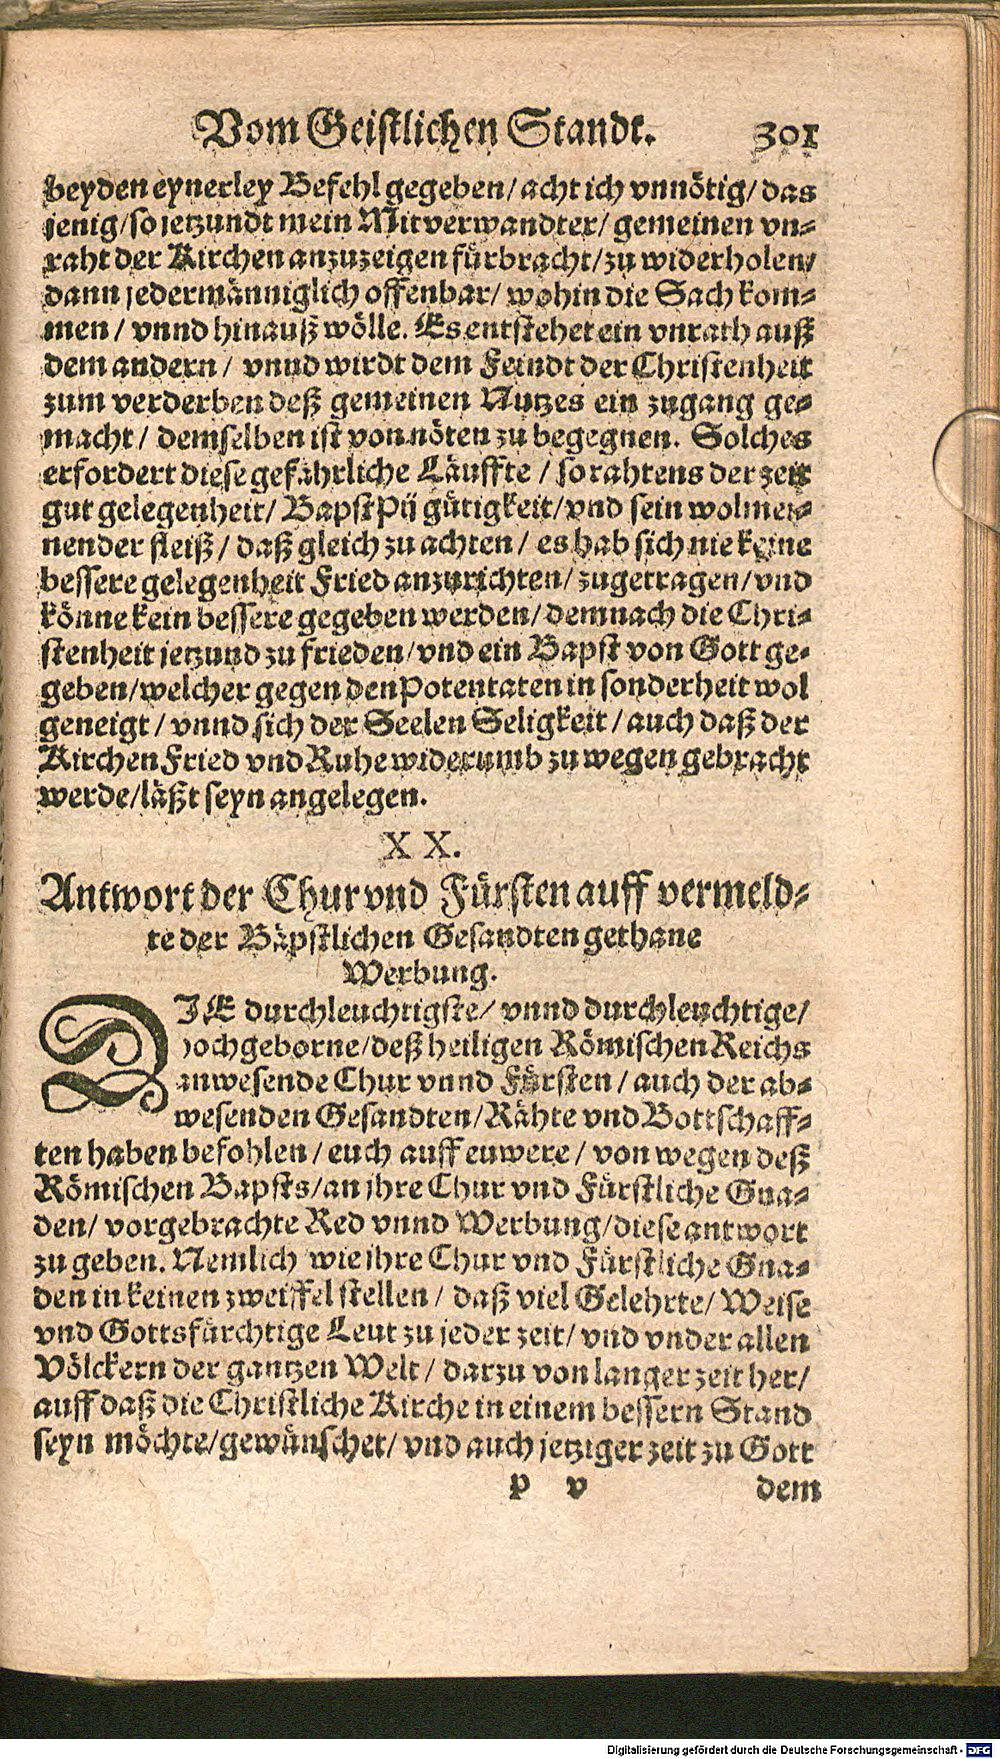 Vom Geistlichen Standt. 301
beyden eynerley Befehl gegeben/ acht ich vnnötig/ das
jenig/ so jetzundt mein Mitverwandter/ gemeinen vn-
raht der Kirchen anzuzeigen fürbracht/ zu widerholen/
dann jedermänniglich offenbar/ wohin die Sach kom-
men/ vnnd hinauß wölle. Es entstehet ein vnrath auß
dem andern/ vnnd wirdt dem Feindt der Christenheit
zum verderben deß gemeinen Nutzes ein zugang ge-
macht/ demselben ist von nöten zu begegnen. Solches
erfordert diese gefährliche Läuffte/ so rahtens der zeit
gut gelegenheit/ Bapst Pij gütigkeit/ vnd sein wolmei-
nender fleiß/ daß gleich zu achten/ es hab sich nie keine
bessere gelegenheit Fried anzurichten/ zugetragen/ vnd
könne kein bessere gegeben werden/ demnach die Chri-
stenheit jetzund zu frieden/ vnd ein Bapst von Gott ge-
geben/ welcher gegen den Potentaten in sonderheit wol
geneigt/ vnnd sich der Seelen Seligkeit/ auch daß der
Kirchen Fried vnd Ruhe widerumb zu wegen gebracht
werde/ läßt seyn angelegen.
XX.
Antwort der Chur vnd Fürsten auff vermeld-
te der Bäpstlichen Gesandten gethane
Werbung.
DIE durchleuchtigste/ vnnd durchleuchtige/
hochgeborne/ deß heiligen Römischen Reichs
anwesende Chur vnnd Fürsten/ auch der ab-
wesenden Gesandten/ Rähte vnd Bottschaff-
ten haben befohlen/ euch auff euwere/ von wegen deß
Römischen Bapsts/ an jhre Chur vnd Fürstliche Gna-
den/ vorgebrachte Red vnnd Werbung/ diese antwort
zu geben. Nemlich wie jhre Chur vnd Fürstliche Gna-
den in keinen zweiffel stellen/ daß viel Gelehrte/ Weise
vnd Gottsfürchtige Leut zu jeder zeit/ vnd vnder allen
Völckern der gantzen Welt/ darzu von langer zeit her/
auff daß die Christliche Kirche in einem bessern Stand
seyn möchte/ gewünschet/ vnd auch jetziger zeit zu Gott
P v dem
Digitalisierung gefördert durch die Deutsche Forschungsgemeinschaft - DFG